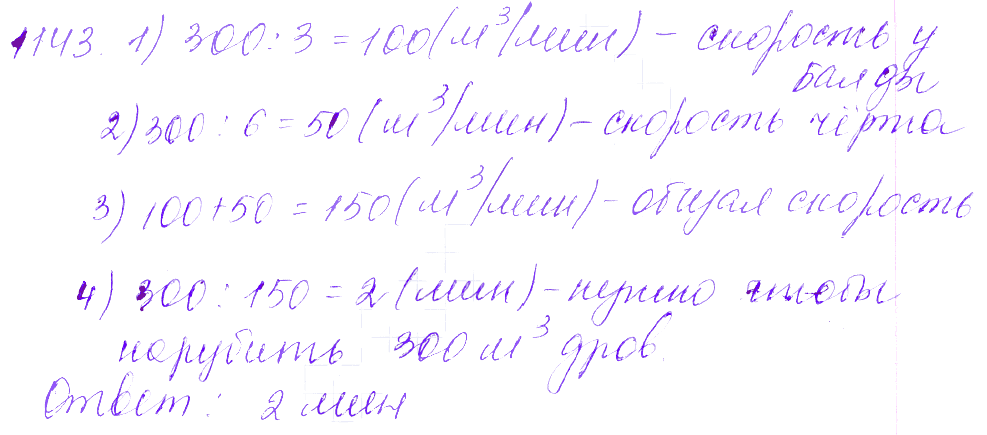 1143. 1) 300 : 3 = 100 (м³/мин) – скорость у
Балды
2) 300 : 6 = 50 (м³/мин) – скорость чёрта
3) 100 + 50 = 150 (м³/мин) – общая скорость
4) 300 : 150 = 2 (мин) – нужно чтобы
нарубить 300 м³ дров.
Ответ: 2 мин